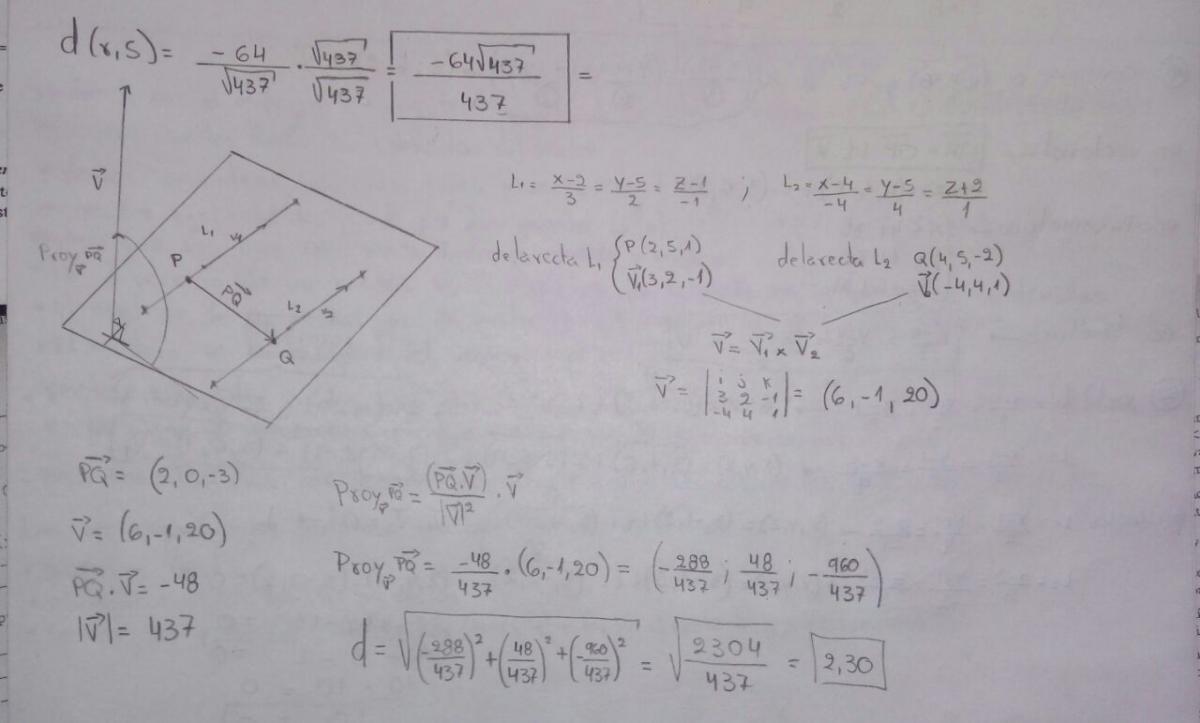 d(r,s) = -64/√437 · √437/√437 = -64√437/437 =
L₁ = x-2/3 = y-5/2 = z-1/-1 ; L₂ = x-4/-4 = y-5/4 = z+2/1
de la recta L₁ { P(2,5,1)
V⃗₁(3,2,-1)
de la recta L₂ Q(4,5,-2)
V⃗₂(-4,4,1)
V⃗
Proy_v⃗ PQ⃗
L₁ v₁
P
PQ⃗
L₂ v₂
Q
V⃗ = V⃗₁ × V⃗₂
V⃗ = | i j k
3 2 -1
-4 4 1 | = (6, -1, 20)
PQ⃗ = (2, 0, -3)
V⃗ = (6, -1, 20)
PQ⃗ . V⃗ = -48
|V⃗| = 437
Proy_v⃗ PQ⃗ = (PQ⃗ . V⃗)/|V⃗|² . V⃗
Proy_v⃗ PQ⃗ = -48/437 . (6, -1, 20) = (-288/437 ; 48/437 ; -960/437)
d = √((-288/437)² + (48/437)² + (-960/437)²) = √(2304/437) = 2,30